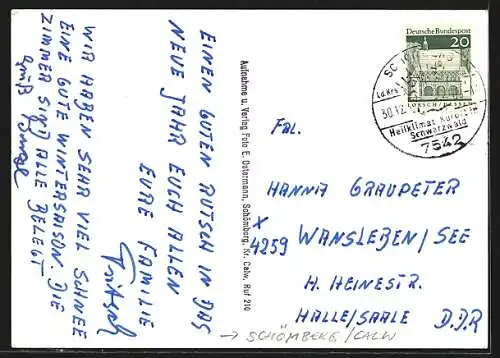 EINEN GUTEN RUTSCH IN DAS
NEUE JAHR EUCH ALLEN
EURE FAMILIE
Fritsch
WIR HABEN SEHR VIEL SCHNEE
EINE GUTE WINTERSAISON. DIE
ZIMMER SIND ALLE BELEGT
Gruß
Aufnahme u. Verlag Foto E. Ostermann, Schömberg, Kr. Calw, Ruf 210
Deutsche Bundespost
20
LORSCH/HESSEN
30.12.
Heilklimat. Kurort
Schwarzwald
7542
FAL.
HANNA GRAUPETER
X
4259 WANSLEBEN/SEE
H. HEINESTR.
HALLE/SAALE D.D.R
→ SCHÖMBERG/CALW